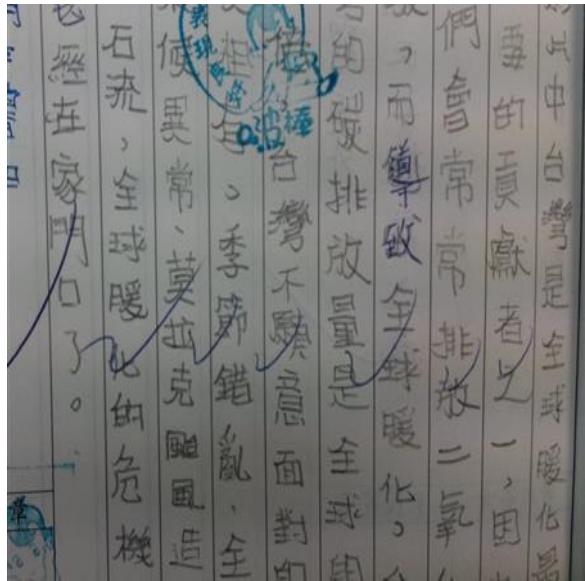 片中台灣是全球暖化最
要的貢獻者之一，因
們會常常排放二氧
，而導致全球暖化。
的碳排放量是全球
台灣不願意面對的
相。季節錯亂、全
候異常、莫拉克颱風造
石流，全球暖化的危機
經在家門口了。